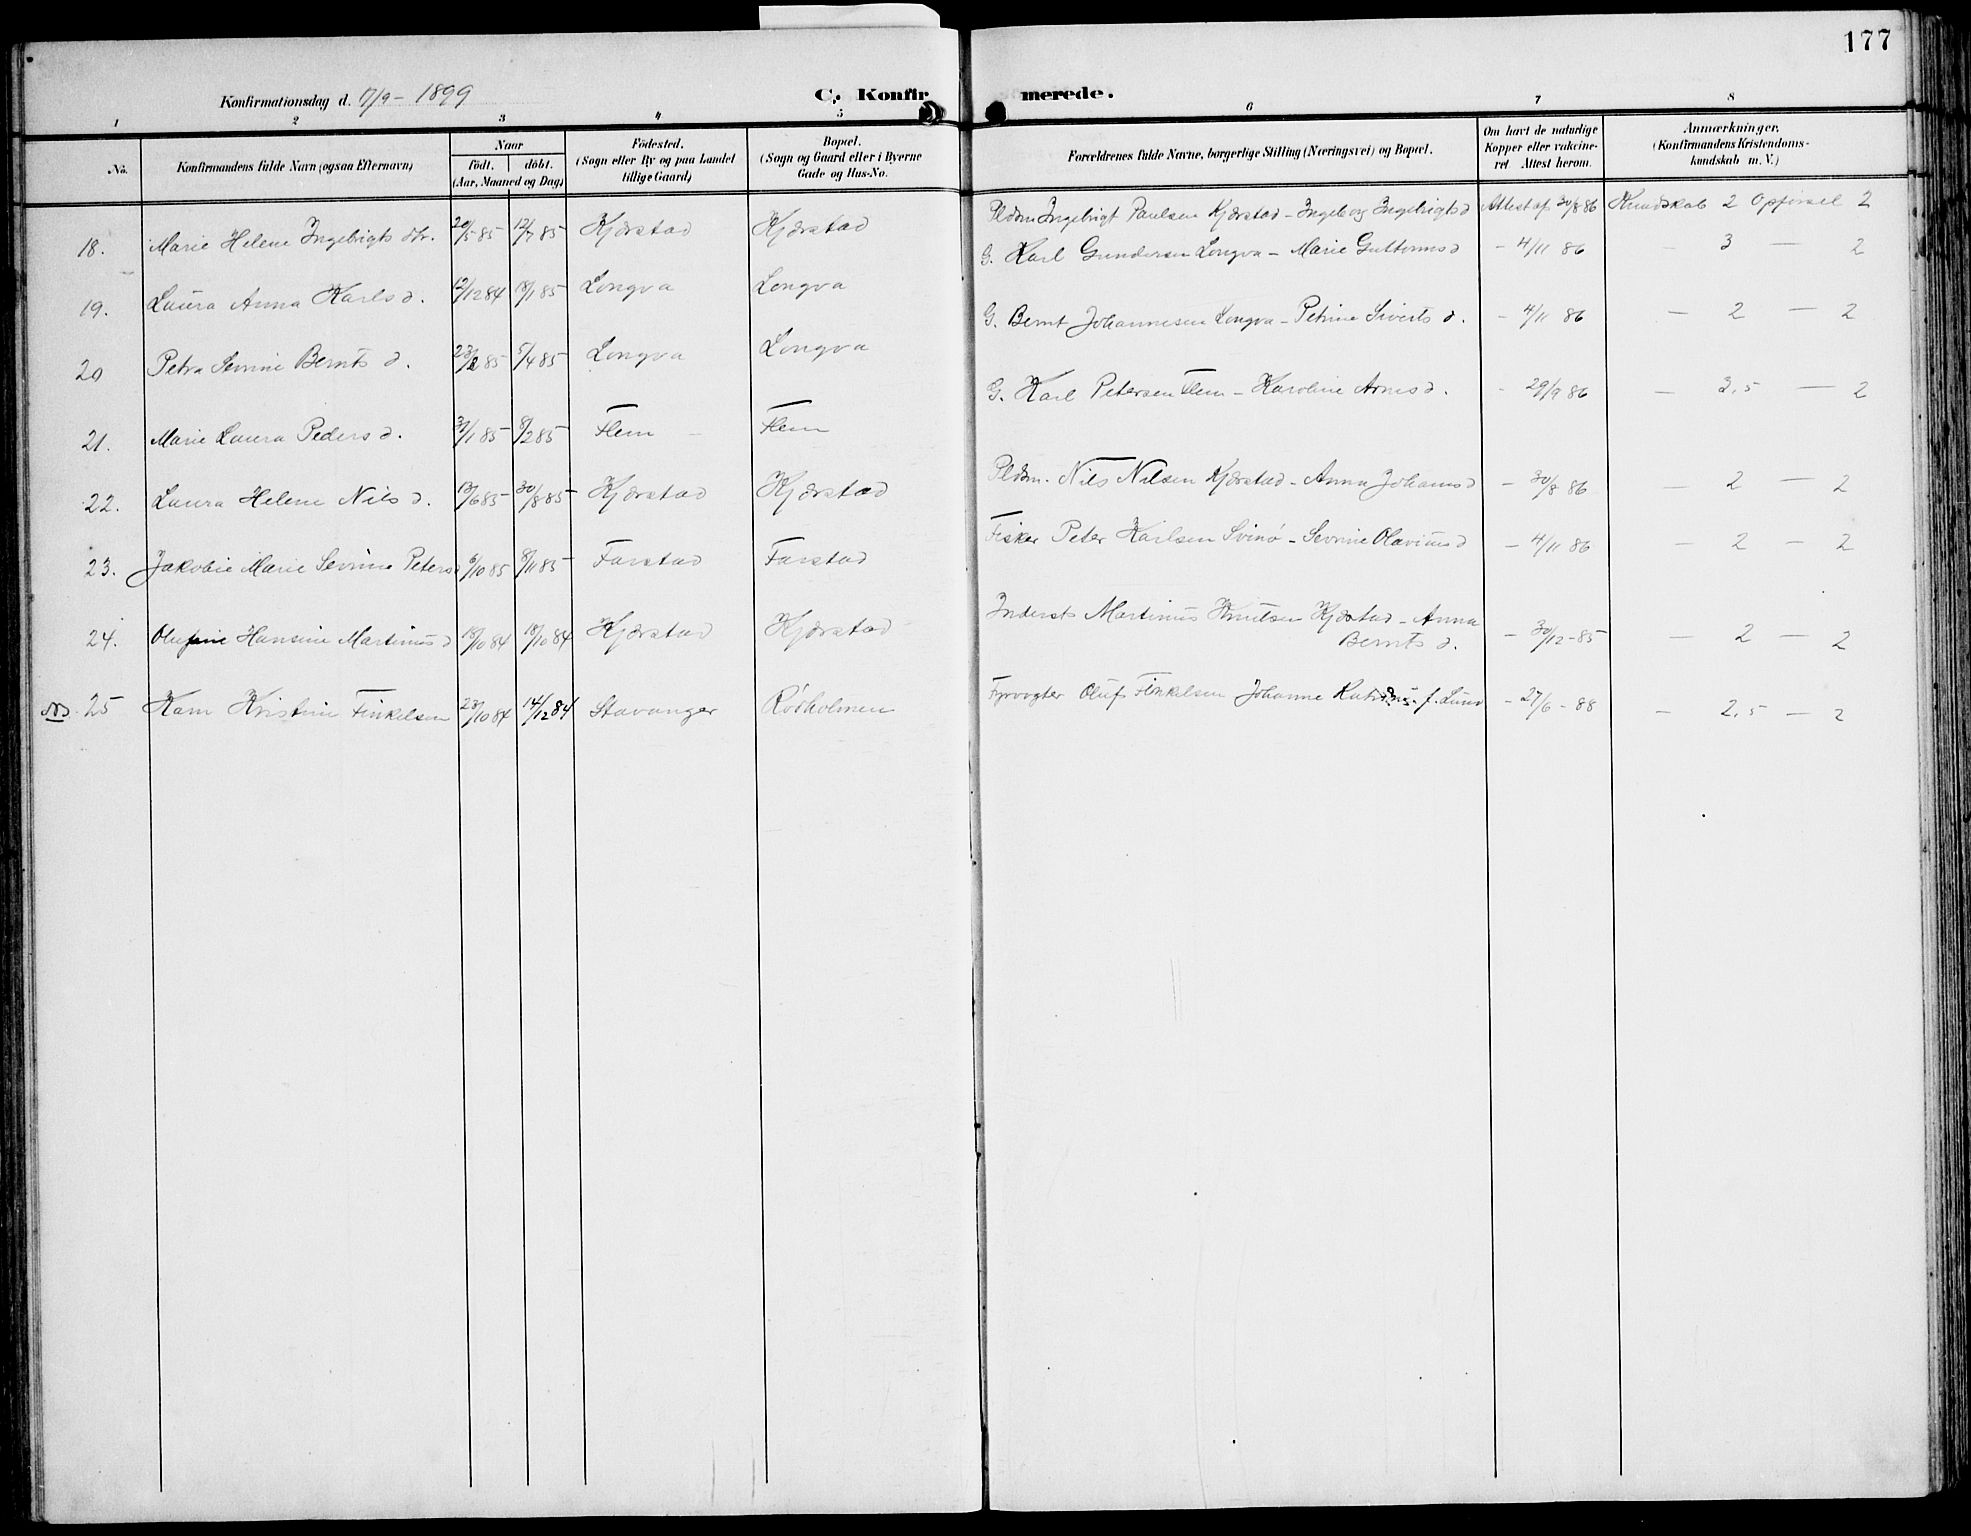 177
Konfirmationsdag d. 17/9 - 1899
C. Konfirmerede.
1 2 3 4 5 6 7 8
No. Konfirmandens fulde Navn (ogsaa Efternavn) Naar födt. döbt. (Aar, Maaned og Dag) Födested. (Sogn eller By og paa Landet tillige Gaard) Bopæl. (Sogn og Gaard eller i Byerne Gade og Hus-No. Forældrenes fulde Navne, borgerlige Stilling (Næringsvei) og Bopæl. Om havt de naturlige Kopper eller vakcineret Attest herom. Anmærkninger. (Konfirmandens Kristendomskundskab m. V.)
18. Marie Helene Ingebrigts dtr. 20/5 85 12/7 85 Kjærstad Kjærstad Pldm Ingebrigt Paulsen Kjærstad - Ingeborg Ingebrigts d Attest af 30/8 86 Kundskab 2 Opførsel 2
19. Laura Anna Karls d. 12/12 84 18/1 85 Longva Longva G. Karl Gundersen Longva - Marie Guttorms d - 4/11 86 - 3 - 2
20 Petra Sevrine Bernts d. 23/2 85 5/4 85 Longva Longva G. Bernt Johannesen Longva - Petrine Siverts d. - 4/11 86 - 2 - 2
21. Marie Laura Peders d. /1 85 8/2 85 Flem Flem G. Karl Petersen Flem - Karoline Arnes d. - 29/9 86 - 3,5 - 2
22. Laura Helene Nils d. 13/6 85 30/8 85 Kjærstad Kjærstad Pldm. Nils Nilsen Kjærstad - Anna Johans d - 30/8 86 - 2 - 2
23. Jakobie Marie Sevrine Peters d 6/10 85 8/11 85 Farstad Farstad Fisker Peter Karlsen Svinø - Sevrine Olavius d - 4/11 86 - 2 - 2
24. Olufine Hansine Martinus d 18/10 84 18/10 84 Kjærstad Kjærstad Inderst Martinus Knutsen Kjærstad - Anna Bernts d. - 30/12 - 85 - 2 - 2
25 Karn Kristine Finkelsen 23/10 84 14/12 84 Stavanger Rødholmen Fyrvogter Oluf Finkelsen Johanne f. Lund - 27/6 - 88 - 2,5 - 2